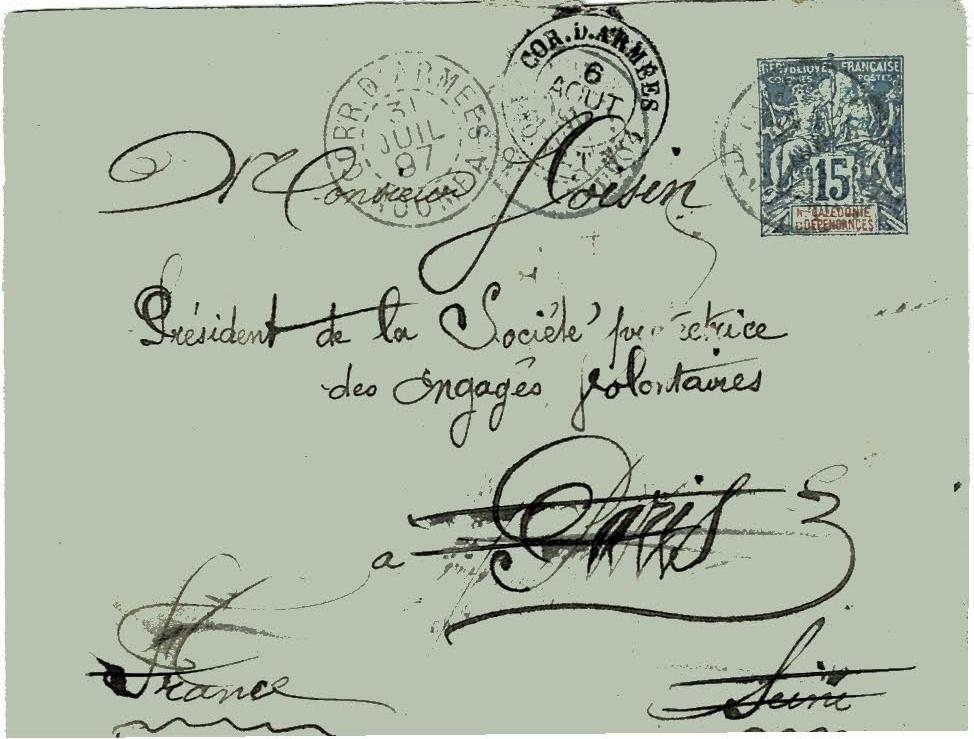 CORR. D'ARMÉES
31
JUIL
97
COR. D. ARMÉES
6
AOUT
RÉPUBLIQUE FRANÇAISE
COLONIES POSTES
15
Nlle CALÉDONIE
ET DÉPENDANCES
Monsieur
Président de la Société protectrice
des Engagés Volontaires
a Paris
France
Seine